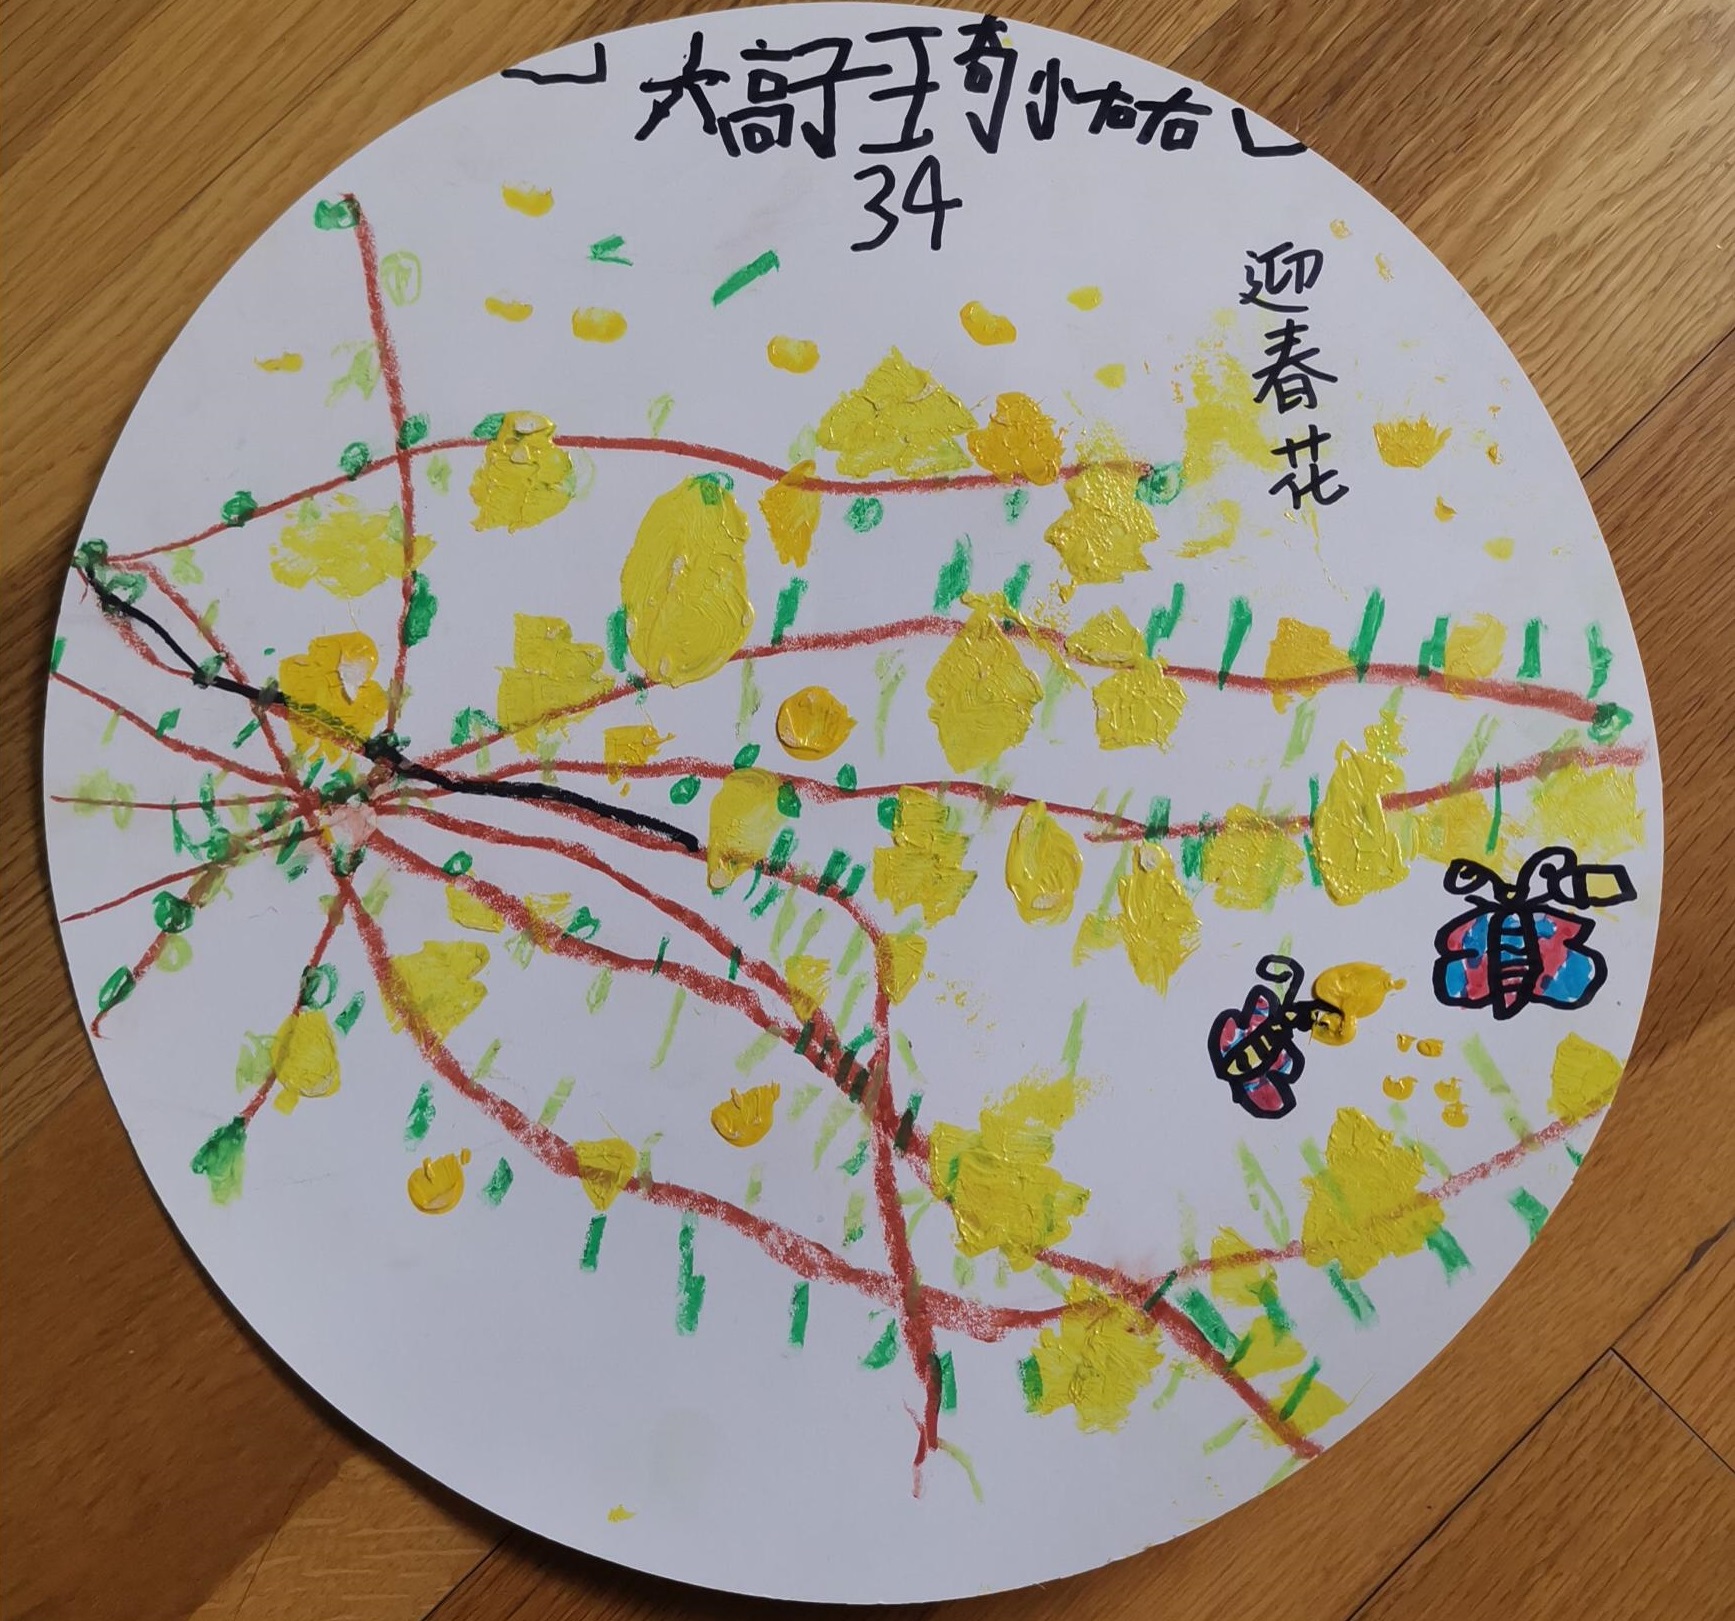 大高子王奇小右右
34
迎春花